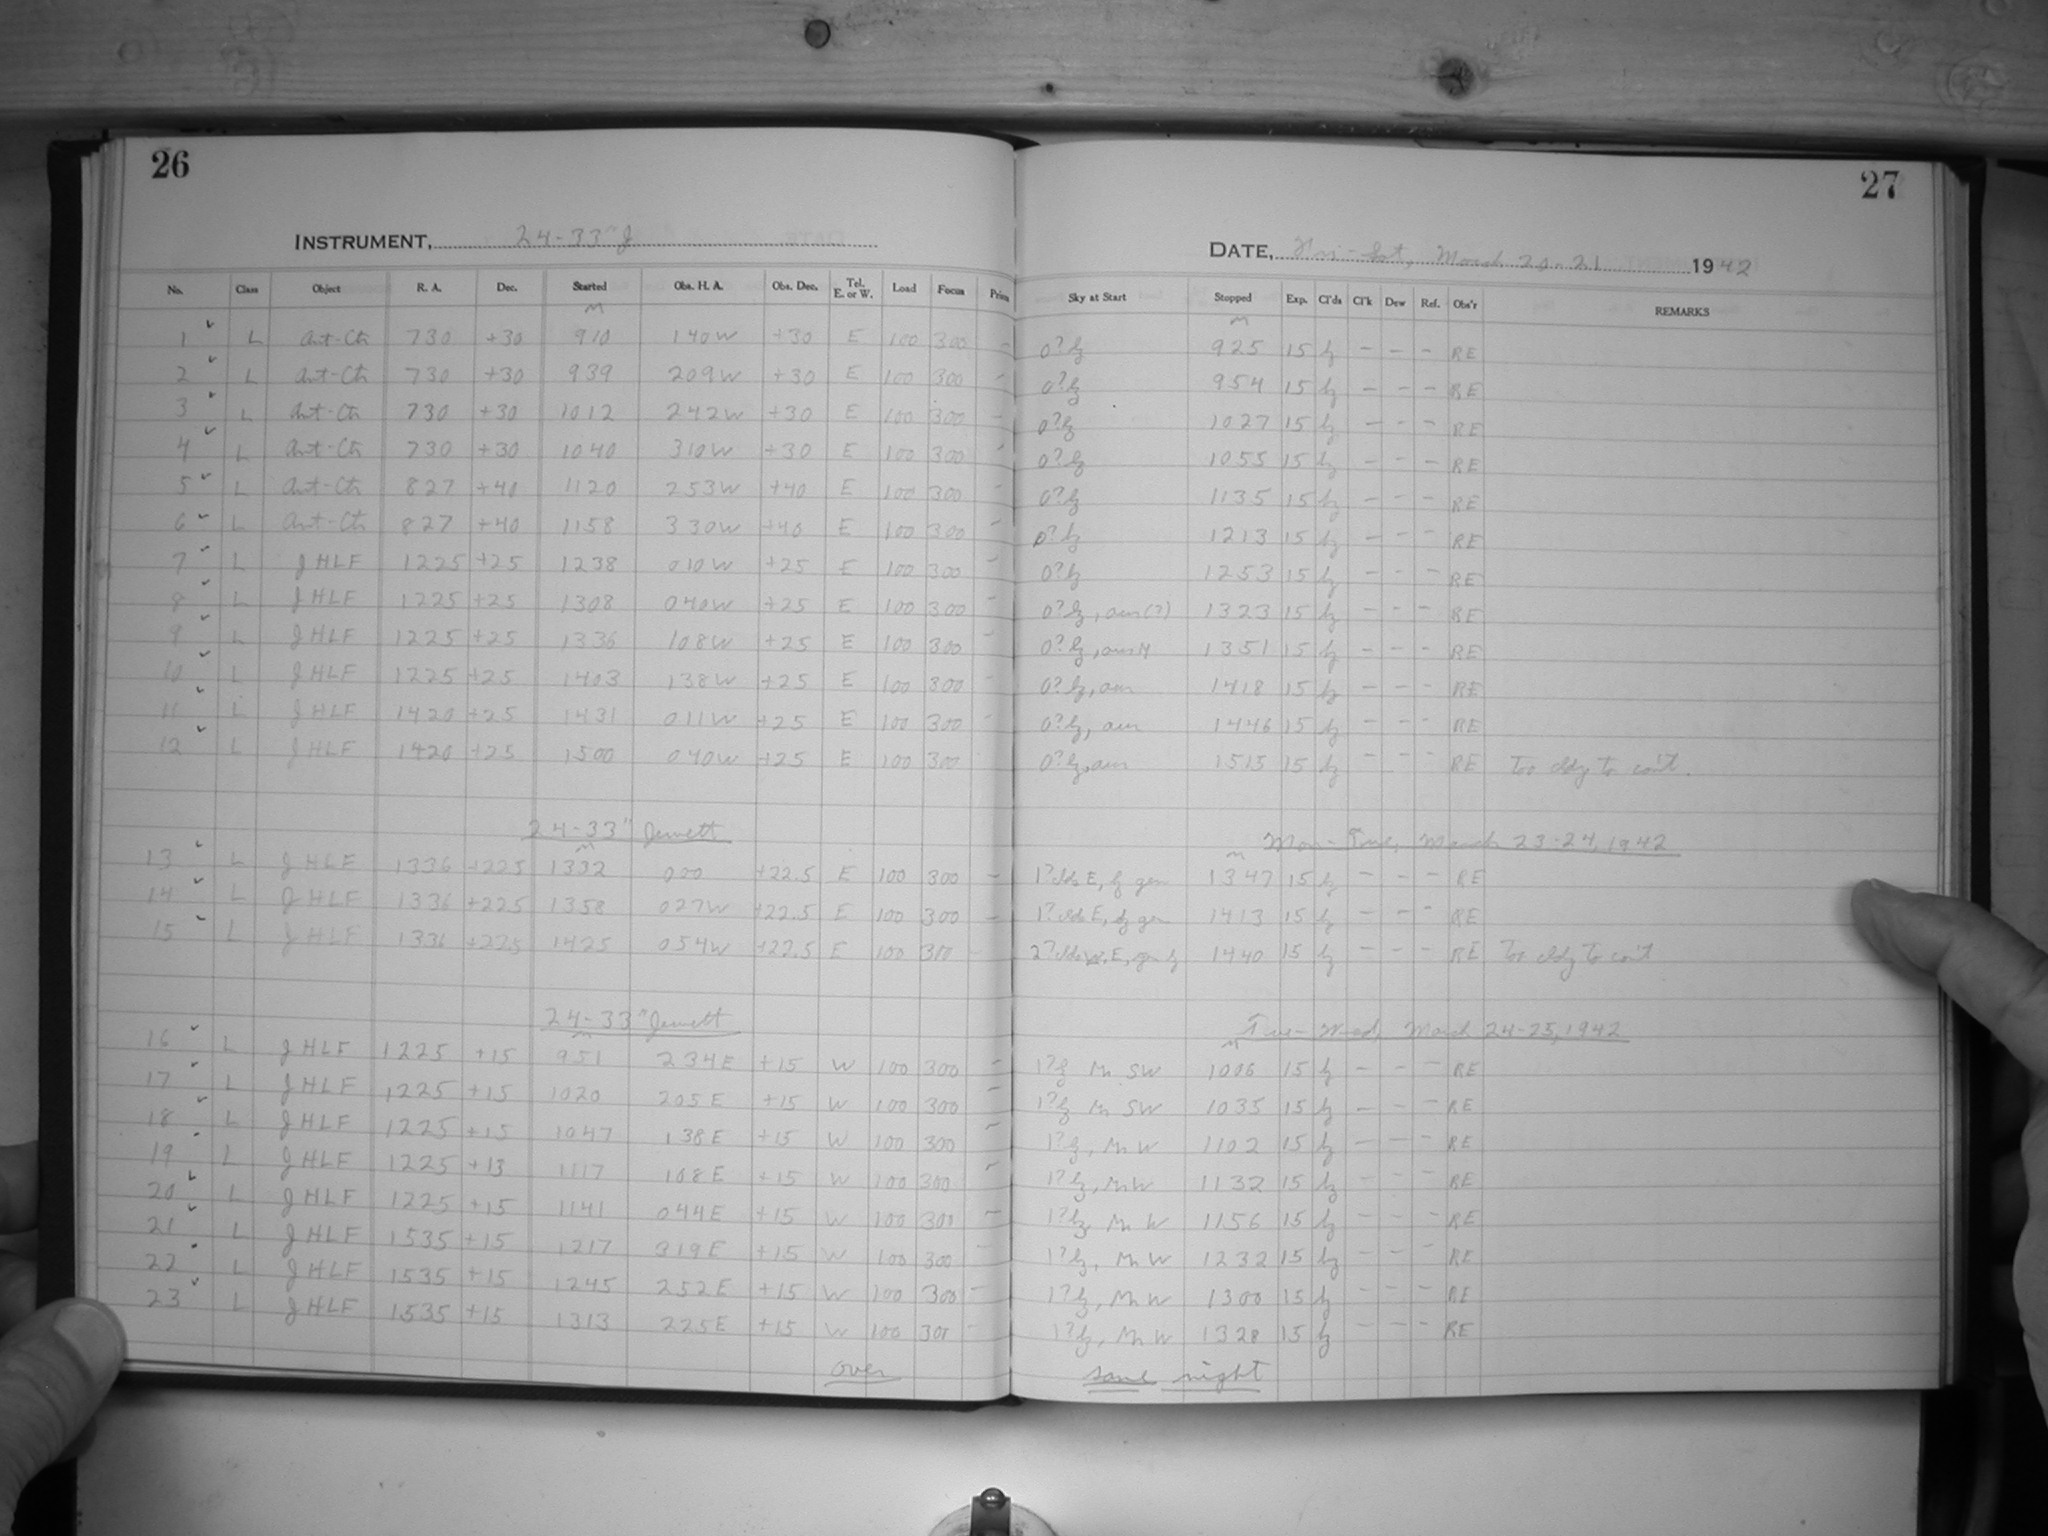 26
27
INSTRUMENT, 24-33" J
DATE, Fri-Sat, March 20-21 1942
No. Class Object R. A. Dec. Started Obs. H. A. Obs. Dec. Tel. E. or W. Load Focus Prism Sky at Start Stopped Exp. Cl'ds Cl'k Dew Ref. Obs'r REMARKS
M M
1 L Ant-Ctr 730 +30 910 140W +30 E 100 300 - 0?hz 925 15 hz - - - RE
2 L Ant-Ctr 730 +30 939 209W +30 E 100 300 - 0?hz 954 15 hz - - - RE
3 L Ant-Ctr 730 +30 1012 242W +30 E 100 300 - 0?hz 1027 15 hz - - - RE
4 L Ant-Ctr 730 +30 1040 310W +30 E 100 300 - 0?hz 1055 15 hz - - - RE
5 L Ant-Ctr 827 +40 1120 253W +40 E 100 300 - 0?hz 1135 15 hz - - - RE
6 L Ant-Ctr 827 +40 1158 330W +40 E 100 300 - 0?hz 1213 15 hz - - - RE
7 L JHLF 1225 +25 1238 010W +25 E 100 300 - 0?hz 1253 15 hz - - - RE
8 L JHLF 1225 +25 1308 040W +25 E 100 300 - 0?hz, aur(?) 1323 15 hz - - - RE
9 L JHLF 1225 +25 1336 108W +25 E 100 300 - 0?hz, aur 1351 15 hz - - - RE
10 L JHLF 1225 +25 1403 138W +25 E 100 300 - 0?hz, aur 1418 15 hz - - - RE
11 L JHLF 1420 +25 1431 011W +25 E 100 300 - 0?hz, aur 1446 15 hz - - - RE
12 L JHLF 1420 +25 1500 040W +25 E 100 300 - 0?hz, aur 1515 15 hz - - - RE Too cldy to con't.
24-33" Jewett Mon-Tue, March 23-24, 1942
M M
13 L JHLF 1336 +225 1332 000 +22.5 E 100 300 - 1?clds E, hz gen 1347 15 hz - - - RE
14 L JHLF 1336 +225 1358 027W +22.5 E 100 300 - 1?clds E, hz gen 1413 15 hz - - - RE
15 L JHLF 1336 +225 1425 054W +22.5 E 100 300 - 2?clds E, gen hz 1440 15 hz - - - RE Too cldy to con't
24-33" Jewett Tue-Wed, March 24-25, 1942
M M
16 L JHLF 1225 +15 951 234E +15 W 100 300 - 1?hz Mn SW 1006 15 hz - - - RE
17 L JHLF 1225 +15 1020 205E +15 W 100 300 - 1?hz Mn SW 1035 15 hz - - - RE
18 L JHLF 1225 +15 1047 138E +15 W 100 300 - 1?hz, Mn W 1102 15 hz - - - RE
19 L JHLF 1225 +15 1117 108E +15 W 100 300 - 1?hz, Mn W 1132 15 hz - - - RE
20 L JHLF 1225 +15 1141 044E +15 W 100 300 - 1?hz, Mn W 1156 15 hz - - - RE
21 L JHLF 1535 +15 1217 319E +15 W 100 300 - 1?hz, Mn W 1232 15 hz - - - RE
22 L JHLF 1535 +15 1245 252E +15 W 100 300 - 1?hz, Mn W 1300 15 hz - - - RE
23 L JHLF 1535 +15 1313 225E +15 W 100 300 - 1?hz, Mn W 1328 15 hz - - - RE
over same night